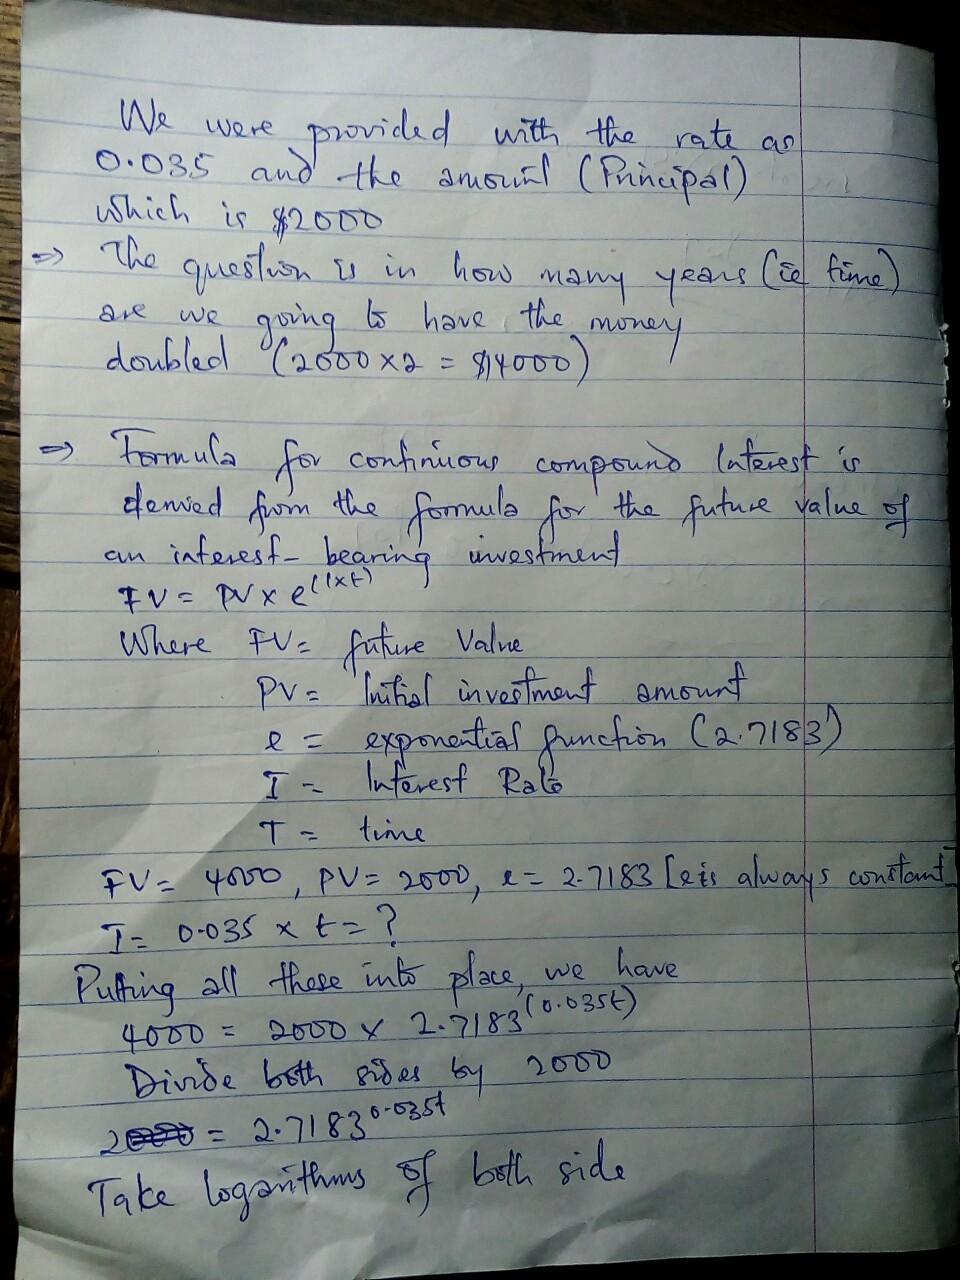 We were provided with the rate as
0.035 and the amount (Principal)
which is $2000
=> The question is in how many years (ie time)
are we going to have the money
doubled (2000 x 2 = $4000)
=> Formula for continuous compound Interest is
derived from the formula for the future value of
an interest-bearing investment
FV = PV x e^(I x t)
Where FV = future Value
PV = Initial investment amount
e = exponential function (2.7183)
I = Interest Rate
T = time
FV = 4000, PV = 2000, e = 2.7183 [e is always constant]
I = 0.035 x t = ?
Putting all these into place, we have
4000 = 2000 x 2.7183^(0.035t)
Divide both sides by 2000
2 = 2.7183^0.035t
Take logarithms of both side